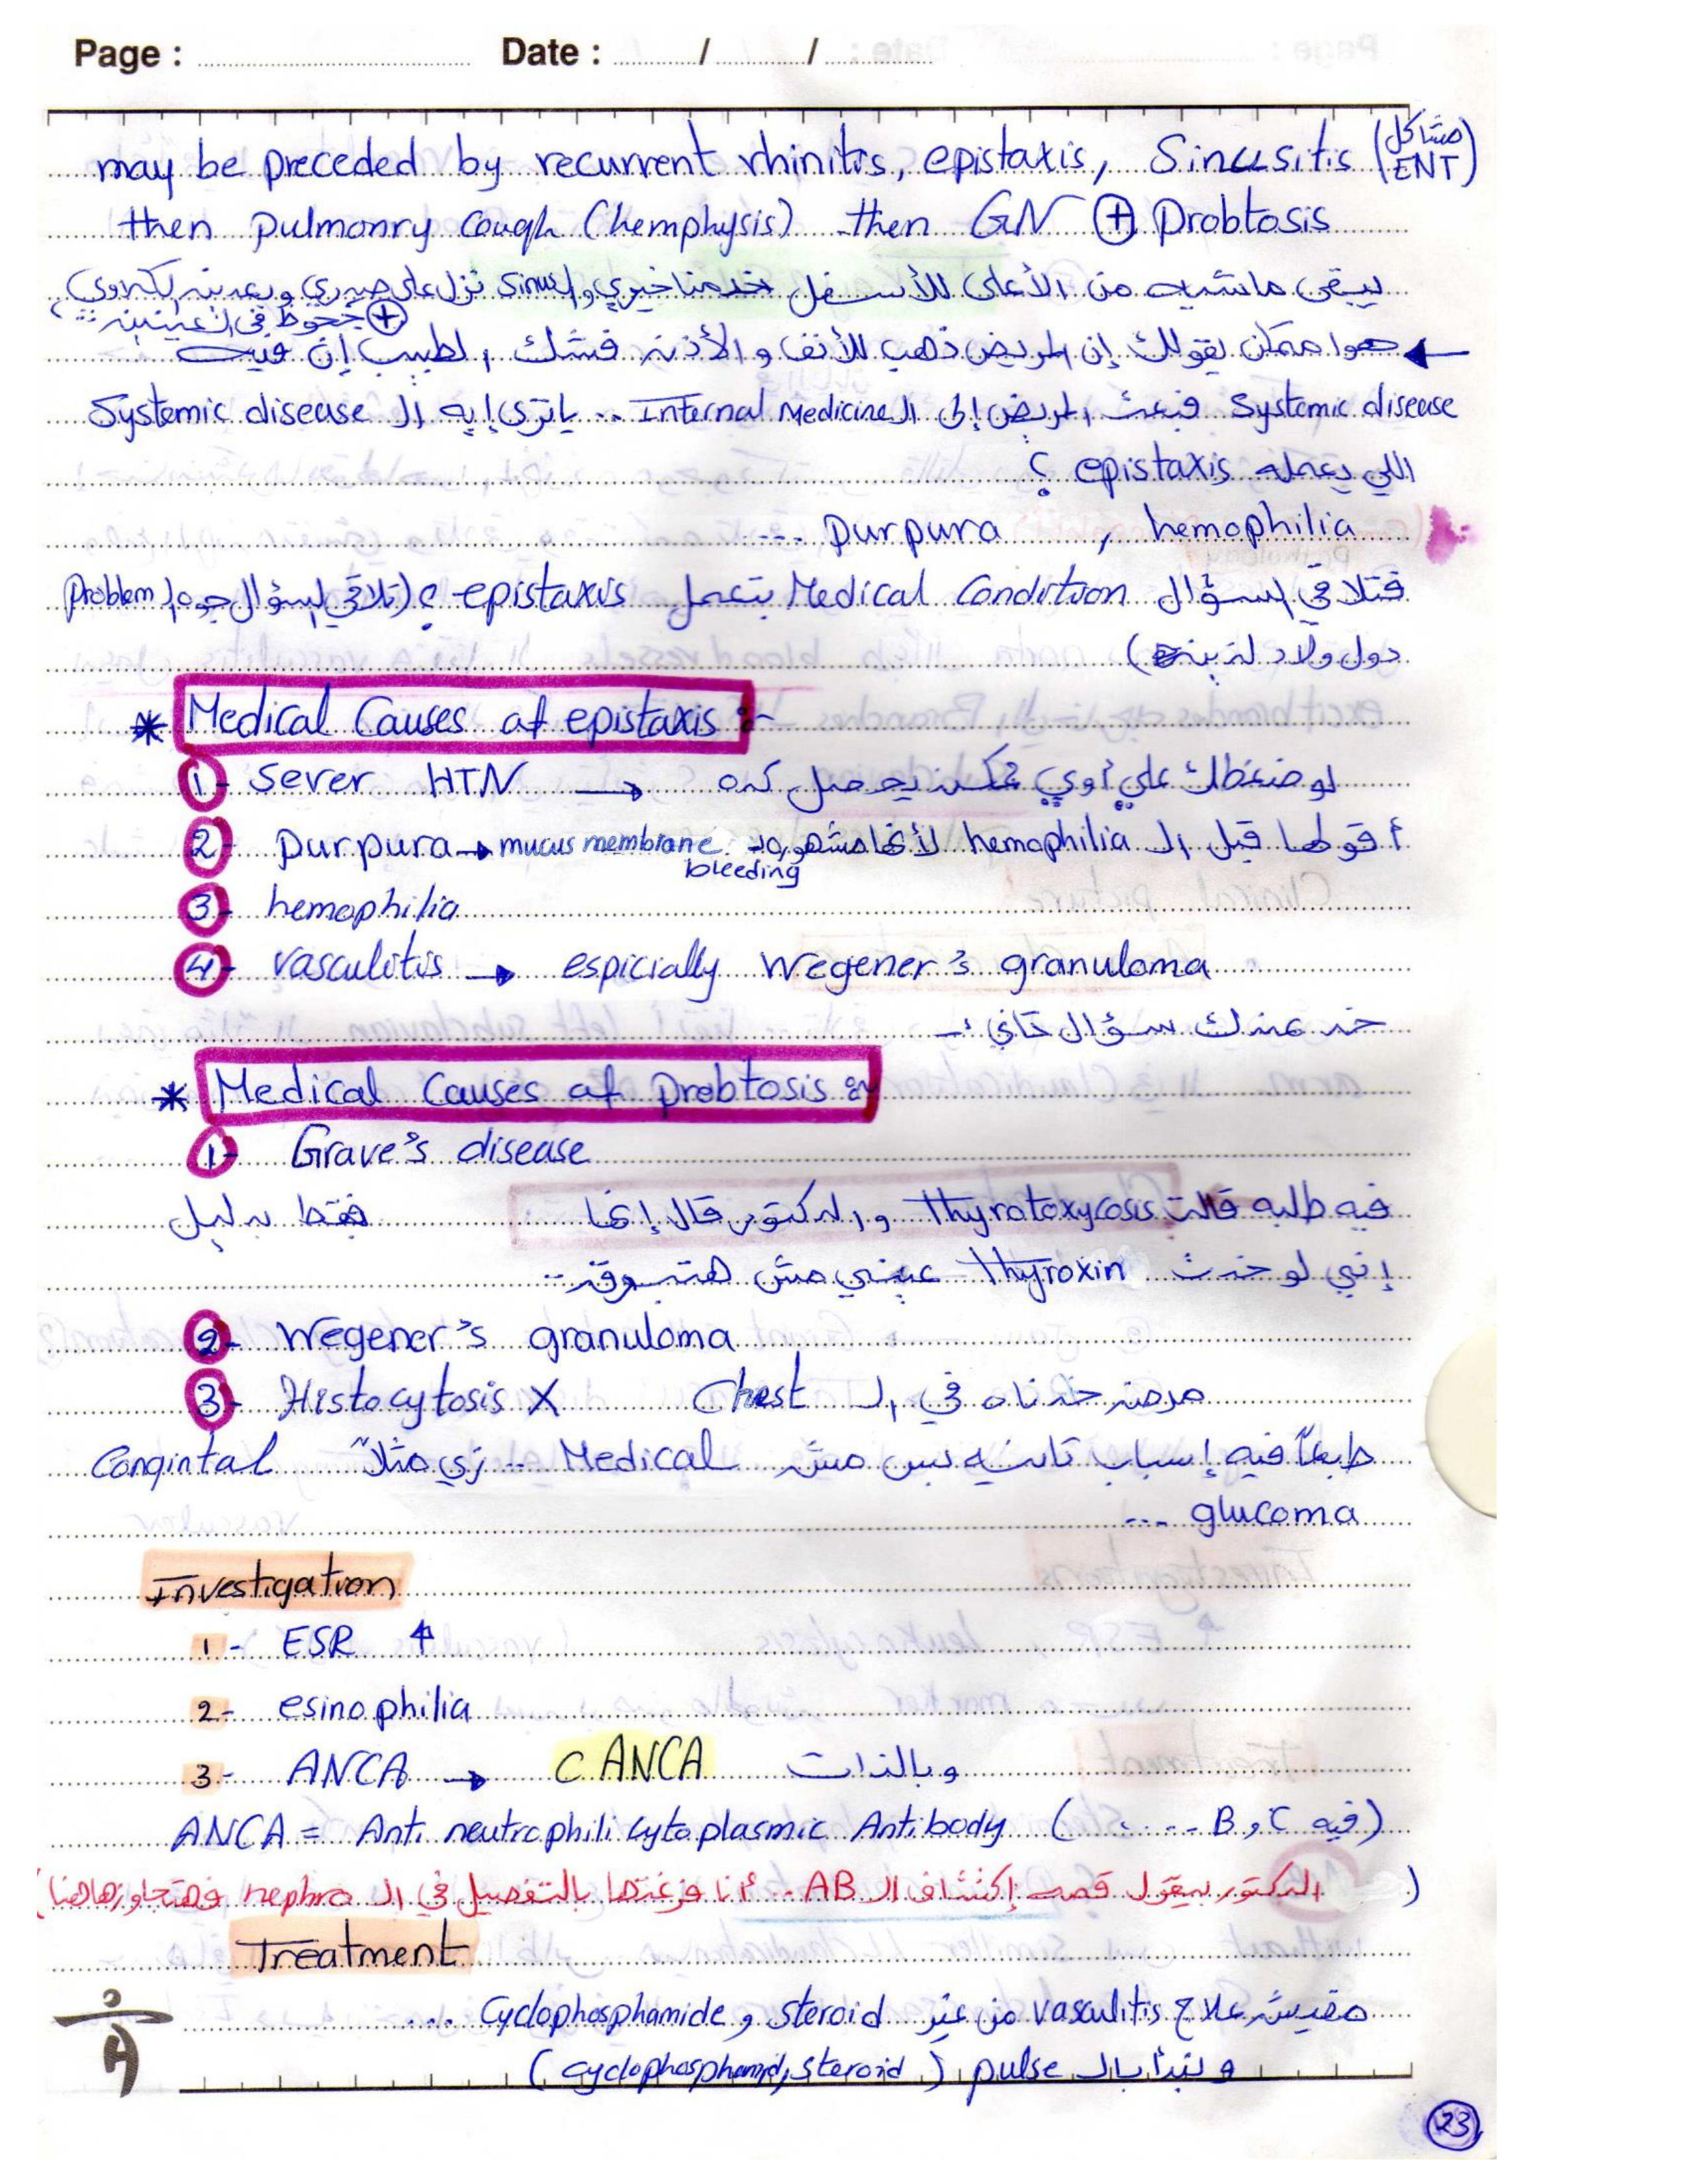 Page : Date : / /
may be preceded by recurrent rhinitis, epistaxis, Sinusitis (مشاكل ENT)
then pulmonry cough (hemphysis) then GN ⊕ Probtosis
يبقى ماشيه من الأعلى للأسفل خدمناخيري والـ sinus نزل على صدري وبعدين لكلاوي
⊕ جحوظ في العينين
هوا ممكن يقولك إن المريض ذهب للأنف والأذن فشك الطبيب إن فيه
Systemic disease فبعت المريض إلى الـ Internal Medicine .. ياترى إيه الـ Systemic disease
اللي يعمله epistaxis ؟
hemophilia , purpura ....
فتلاقي السؤال Medical Condition بتعمل epistaxis ؟ (تلاقي السؤال جوه الـ Problem
دول ولاد لذينه)
* Medical Causes of epistaxis :-
1- Sever HTN → لو ضغطك علي أوي ممكن يحصل كده
2- Purpura → mucus membrane bleeding أقولها قبل الـ hemophilia لأنها مشهوره
3- hemophilia
4- vasculitis → espicially Wegener's granuloma
خد عندك سؤال تاني :-
* Medical Causes of Probtosis :-
1- Grave's disease
فيه طلبه قالت Thyrotoxycosis والدكتور قال إنها فقط بدليل
إنني لو خدت Thyroxin عيني مش هتبرق ..
2- Wegener's granuloma
3- Histocytosis X مرض خدناه في الـ Chest
طبعاً فيه إسباب تانيه بس مش Medical .. زي مثلاً Congintal
glucoma ...
Investigation
1- ESR ↑
2- esinophilia
3- ANCA → C ANCA وبالذات
ANCA = Anti neutrophili cytoplasmic Antibody (فيه B و C ....)
(الدكتور بيقول قصه إكتشاف الـ AB .. أنا فرغتها بالتفصيل في الـ nephro فهتجاوزها هنا)
Treatment
مفيش علاج vasculitis من غير steroid و Cyclophosphamide ...
ونبدأ بالـ pulse (cyclophosphamid, steroid)
23